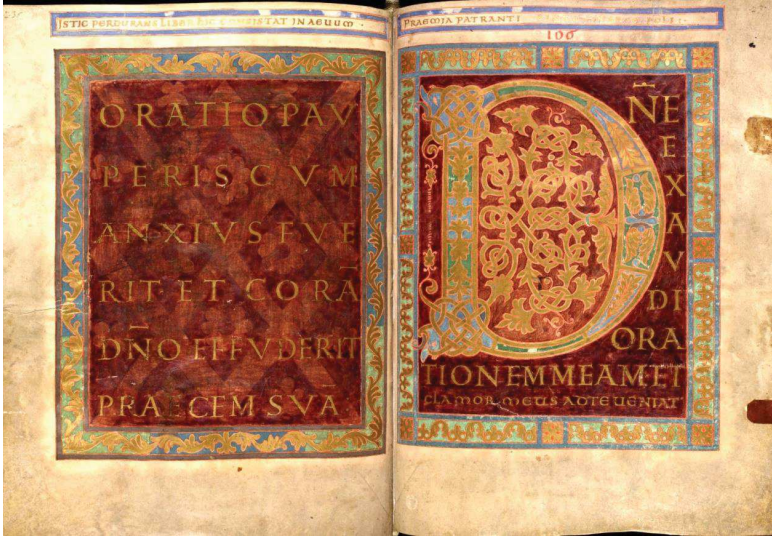 ISTIC PERDURANS LIBER HIC CONSISTAT IN AEUUM ·
ORATIO PAV
PERIS CVM
ANXIVS FVE
RIT·ET CORA
DN̄O EFFVDERIT
PRAECEM SVA
PRAEMIA PATRANTI
106
DN̄E
E
X
A
V
DI
ORA
TIONEM MEAM ET
CLAMOR MEUS AD TE UENIAT